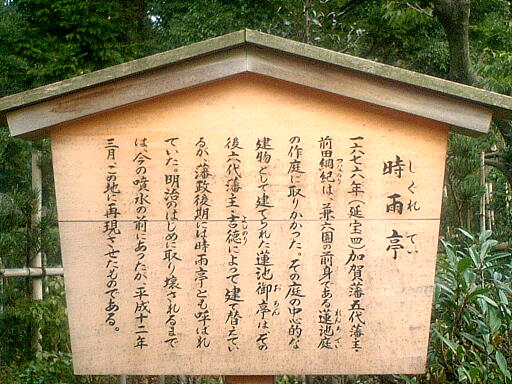 時雨亭
しぐれ てい
一六七六年(延宝四)加賀藩五代藩主・
前田綱紀は、兼六園の前身である蓮池庭
つなのり れんちてい
の作庭に取りかかった。その庭の中心的な
建物として建てられた蓮池御亭は、その
おちん
後六代藩主・吉徳によって建て替えてい
よしのり
るが、藩政後期には時雨亭とも呼ばれ
ていた。明治のはじめに取り壊されるまで
は、今の噴水の前にあったが、平成十二年
三月、この地に再現させたものである。